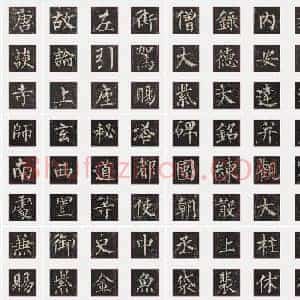 唐故左街僧錄內
談論引駕大德安
寺上座賜紫大達
師玄秘塔碑銘并
南西道都團練觀
處置等使朝散大
兼御史中丞上柱
賜紫金魚袋裴休